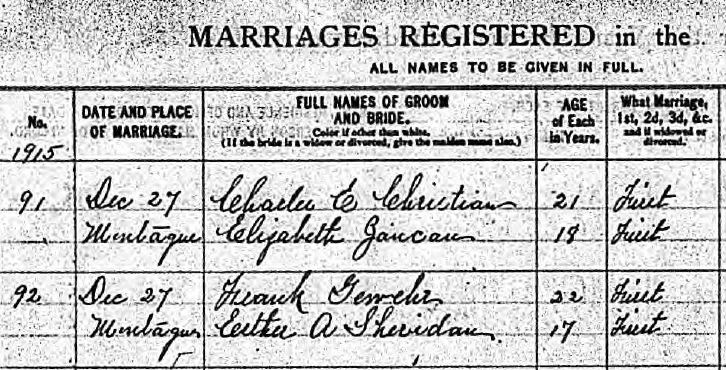 MARRIAGES REGISTERED in the
ALL NAMES TO BE GIVEN IN FULL.
No. DATE AND PLACE OF MARRIAGE. FULL NAMES OF GROOM AND BRIDE. Color if other than white. (If the bride is a widow or divorced, give the maiden name also.) AGE of Each in Years. What Marriage, 1st, 2d, 3d, &c. and if widowed or divorced.
1915
91 Dec 27 Charles E Christian 21 First
Montague Elizabeth 18 First
92 Dec 27 Frank Gewehr 22 First
Montague Esther A Sheridan 17 First